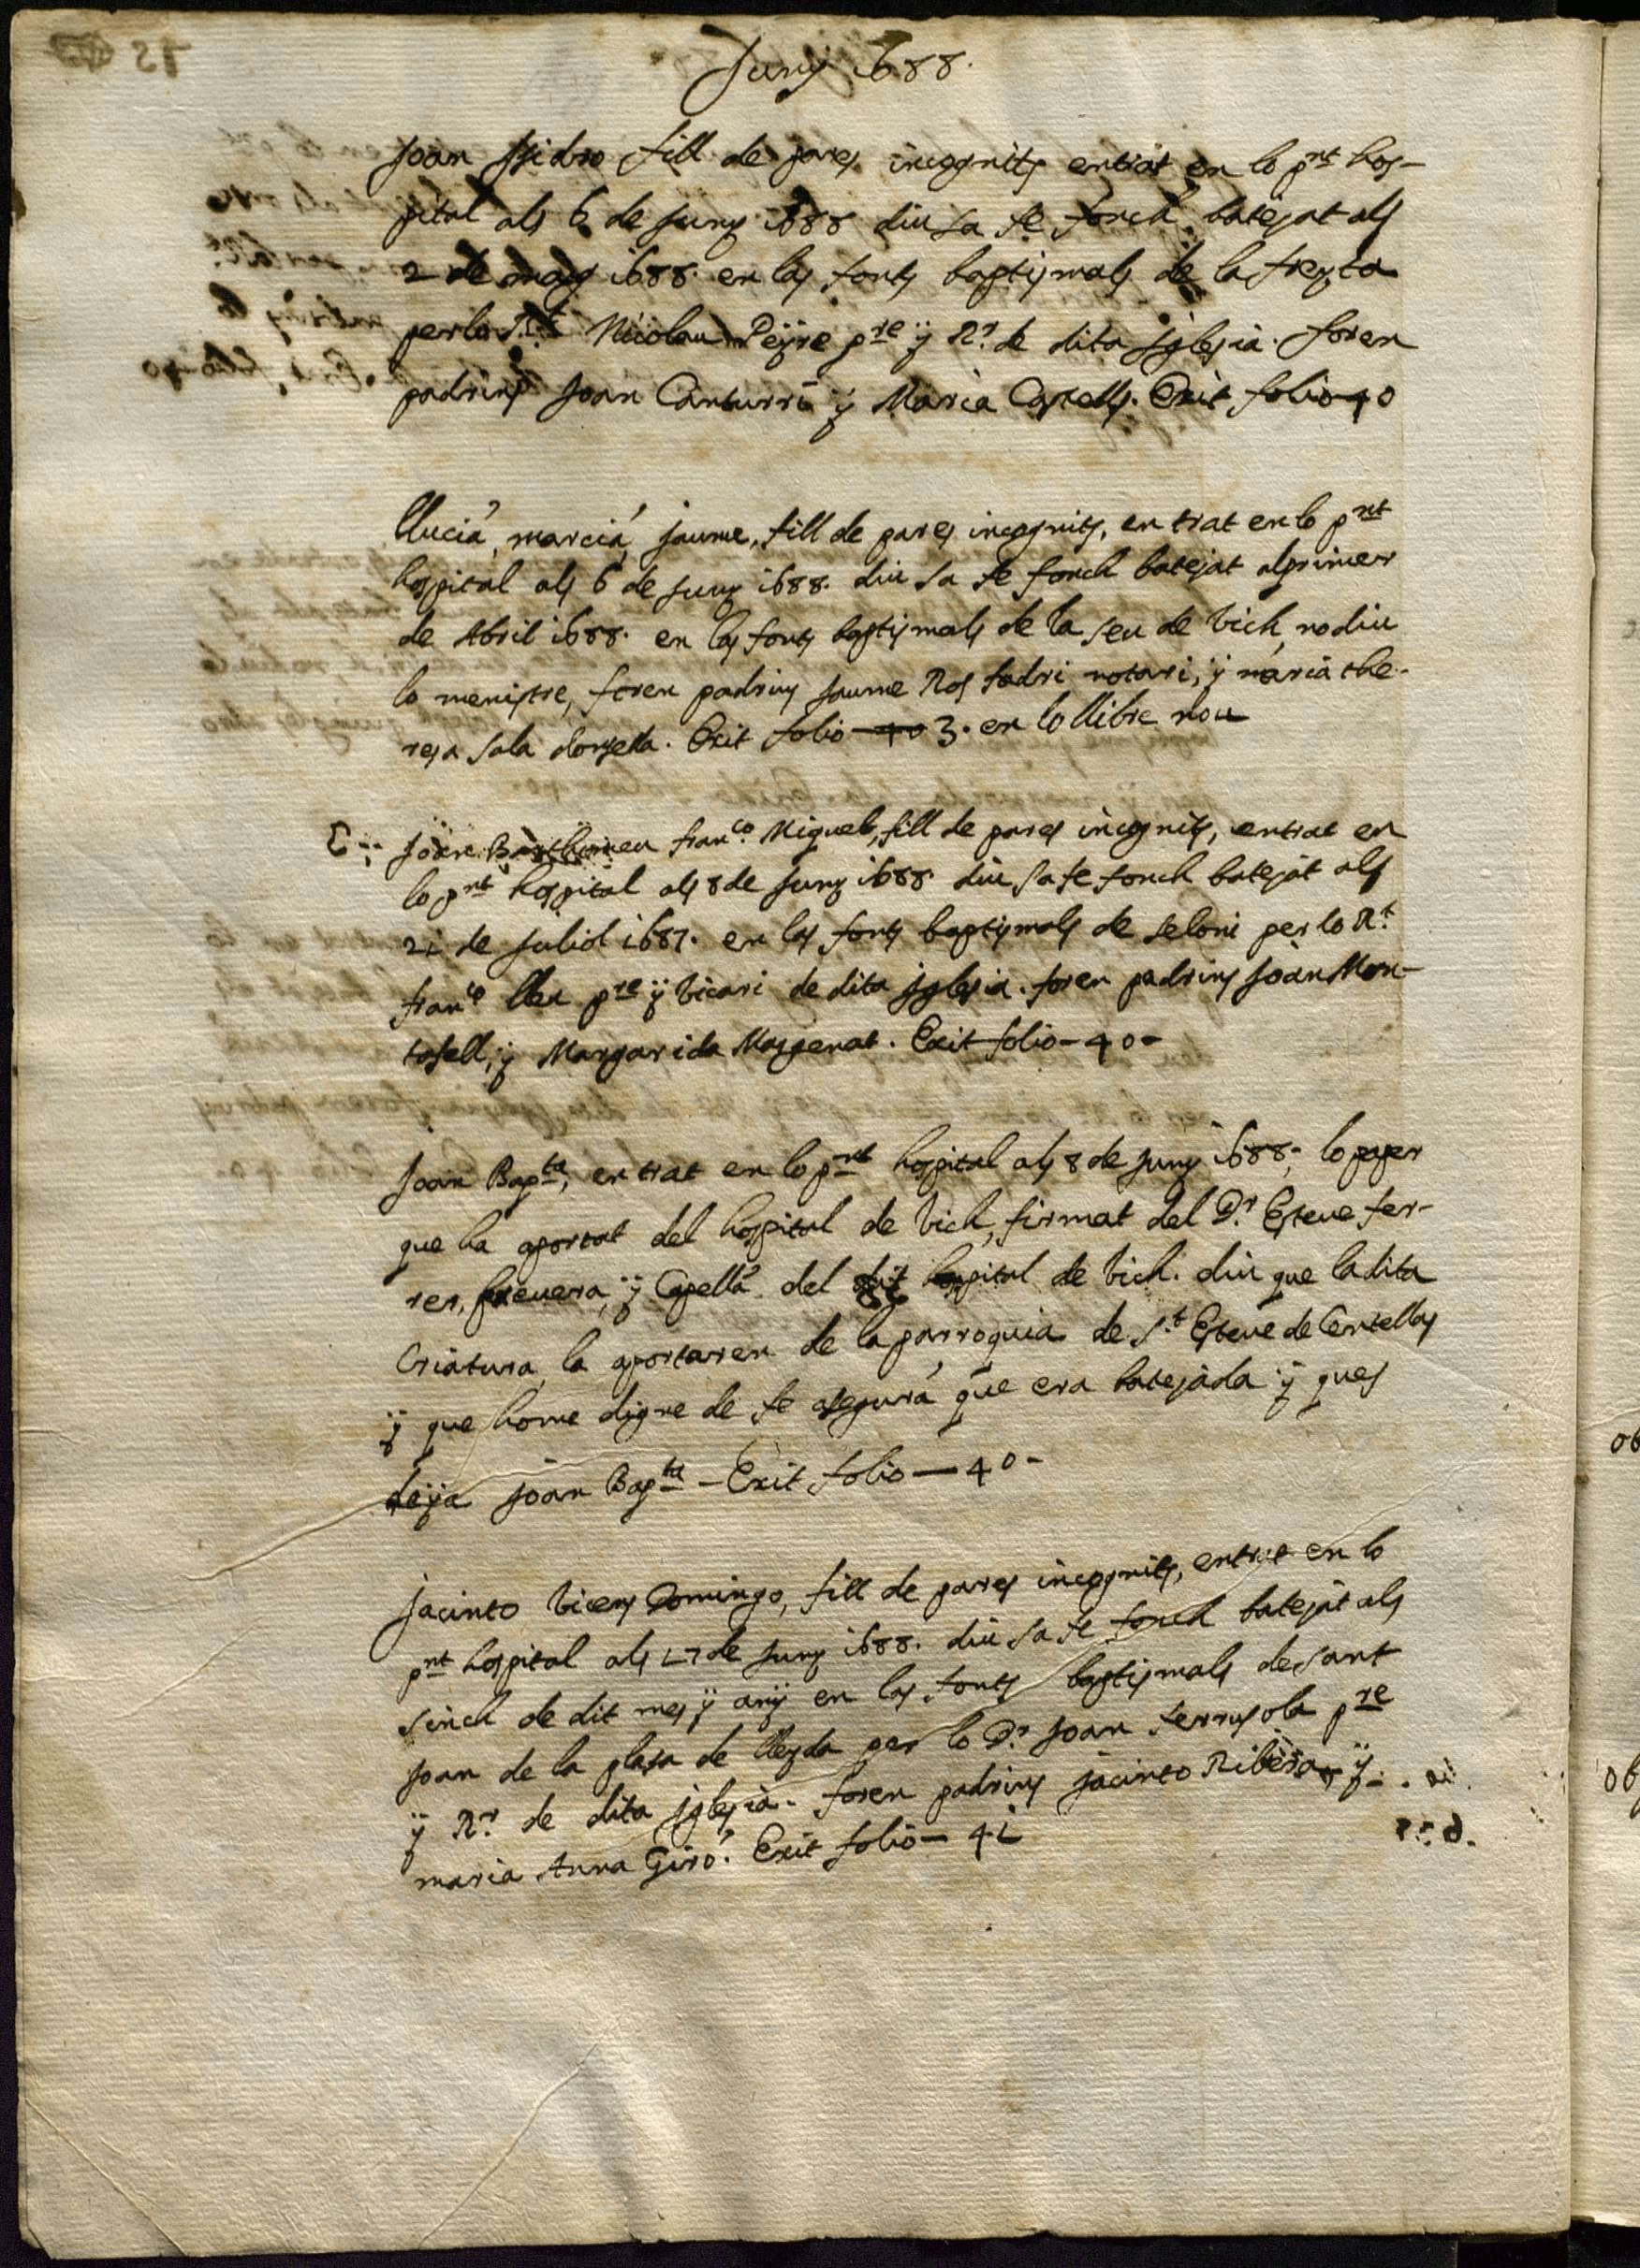 Juny 1688.
Joan Isidro fill de pares incognits entrat en lo pnt hos-
pital als 6 de Juny 1688 diu sa fe fonch batejat als
2 de maig 1688. en las fonts baptismals de la freyta
per lo Rt Nicolau Peyre pre y Rr. de dita Iglesia. foren
padrins Joan Canturri y Maria Castells. Exit folio 40
Llucià, marcià, jaume, fill de pares incognits, entrat en lo pnt
hospital als 6 de Juny 1688. diu sa fe fonch batejat al primer
de Abril 1688. en las fonts baptismals de la seu de Vich, no diu
lo menistre, foren padrins Jaume Ros fadri notari, y maria the-
resa Sala donsella. Exit folio 40 3. en lo llibre nou
Joan Barthomeu Franco. Miquel, fill de pares incognits, entrat en
lo pnt hospital als 8 de Juny 1688. diu sa fe fonch batejat als
21 de Juliol 1687. en las fonts baptismals de Seloni per lo Rt.
Franco lleu pre y vicari de dita Iglesia. foren padrins Joan Mon-
tasell, y Margarida Masgenat. Exit folio - 40 -
Joan Bapta, entrat en lo pnt hospital als 8 de Juny 1688, lo paper
que ha aportat del hospital de Vich, firmat del Dr. Esteve fer-
rer, prevera, y Capellà del dit hospital de Vich. diu que la dita
Criatura, la aportaren de la parroquia de St. Esteve de Centellas
y que home digne de fe asegurà que era batejada y ques
deya Joan Bapta - Exit folio - 40 -
Jacinto Vicens Domingo, fill de pares incognits, entrat en lo
pnt hospital als 17 de Juny 1688. diu sa fe fonch batejat als
sinch de dit mes y any en las fonts baptismals de sant
Joan de la plasa de lleyda per lo Dr. Joan ferrusola pre
y Rr. de dita Iglesia. foren padrins Jacinto Ribera y
maria Anna Giró. Exit folio - 41